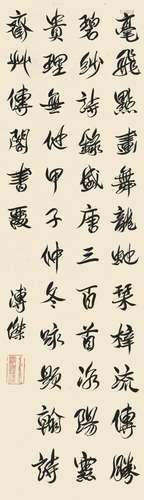 毫飛點畫舞龍蛇琹梓流傳勝
碧紗詩錄盛唐三百首洛陽應
貴理無他甲子仲冬咏題翰詩
齋艸傳閣書 溥傑